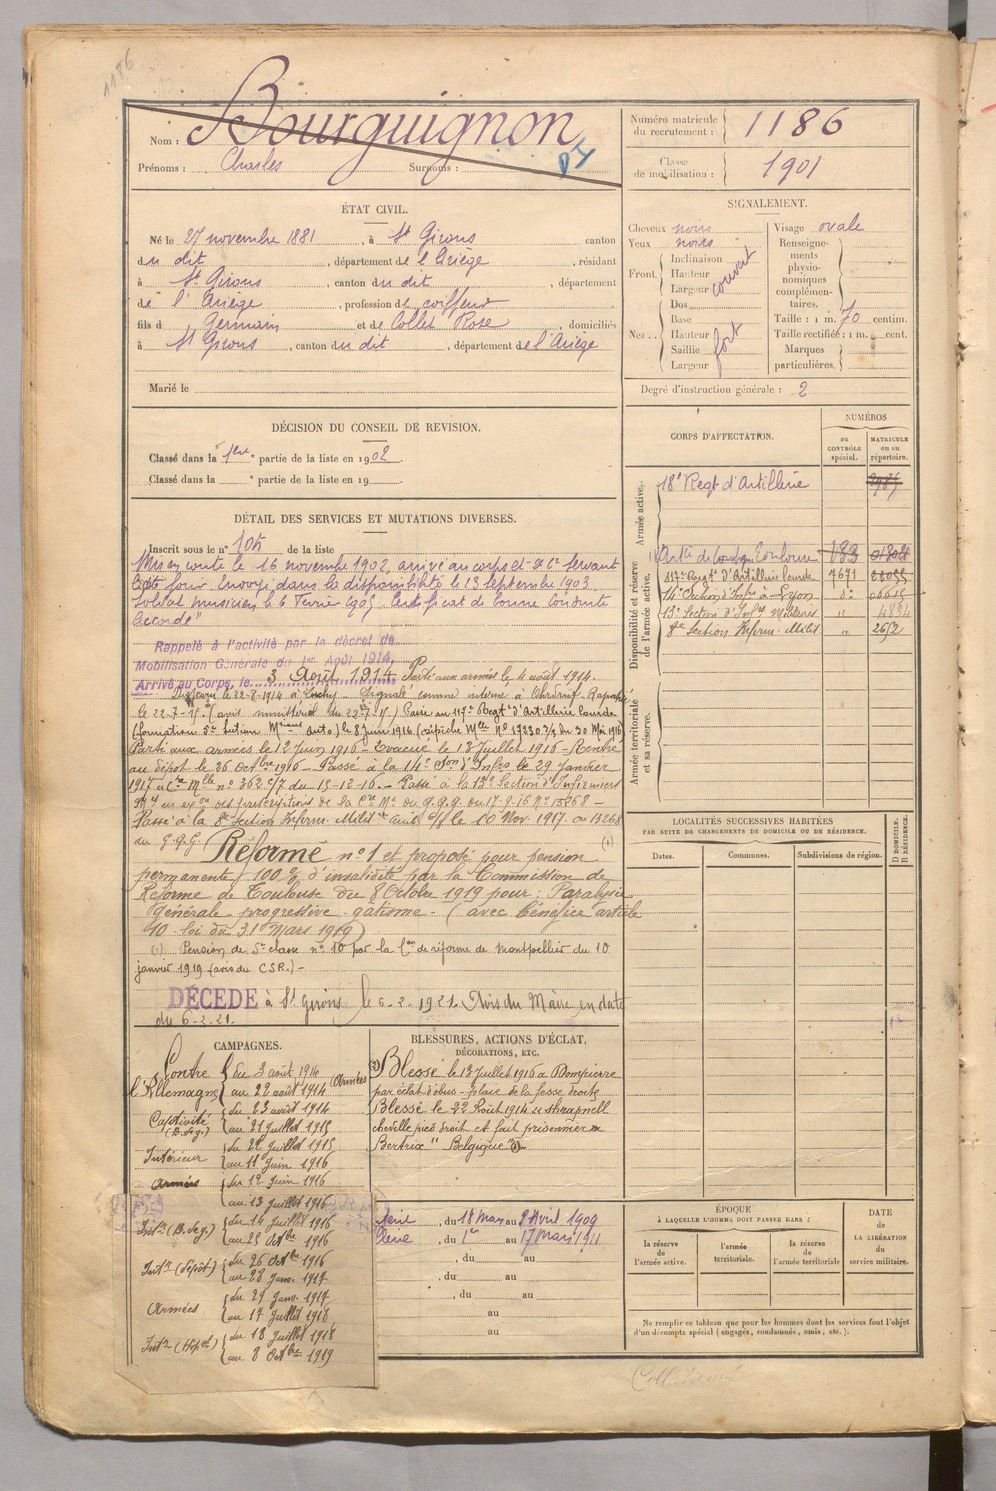 1186
Nom : Bourguignon
Prénoms : Charles Surnoms :
Numéro matricule du recrutement : 1186
Classe de mobilisation : 1901
ÉTAT CIVIL.
Né le 27 novembre 1881, à St Girons canton
du dit, département de l'Ariège, résidant
à St Girons, canton du dit, département
de l'Ariège, profession de coiffeur
fils d Germain et de Collet Rose, domiciliés
à St Girons, canton du dit, département de l'Ariège
Marié le
SIGNALEMENT.
Cheveux noirs
Yeux noirs
Front
Inclinaison
Hauteur
Largeur
couvert
Nez
Dos
Base
Hauteur
Saillie
Largeur
fort
Visage ovale
Renseignements physionomiques complémentaires.
Taille : 1 m. 70 centim.
Taille rectifiée : 1 m. cent.
Marques particulières.
Degré d'instruction générale : 2
DÉCISION DU CONSEIL DE REVISION.
Classé dans la 1ère partie de la liste en 1902.
Classé dans la ° partie de la liste en 19
DÉTAIL DES SERVICES ET MUTATIONS DIVERSES.
Inscrit sous le n° de la liste
Mis en route le 16 novembre 1902, arrivé au corps et 2e Cr servant
le dit jour Envoyé dans la disponibilité le 23 septembre 1903
Soldat musicien le 6 Février 1905 Certificat de bonne conduite
accordé"
Rappelé à l'activité par le décret de
Mobilisation Générale du 1er Août 1914,
Arrivé au Corps, le 3 Août 1914 Parti aux armées le 4 août 1914.
Disparu le 22-8-1914 à Luchy Signalé comme interné à Ohrdruf. Rapatrié
le 22-7-15 (avis ministériel du 22-7-15) Passé au 117e Regt d'Artillerie lourde
le 8 juin 1916 du 30 Mai 1916
Parti aux armées le 12 Juin 1916 - Evacué le 13 Juillet 1916 - Rentré
au dépôt le 26 Octbre 1916 - Passé à la 14e Son d'Infrs le 29 Janvier
1917 n° 362 c/7 du 15-12-16. - Passé à la 13e Section d'Infirmiers
Mres en exon des prescriptions de la
Passé à la 8e Section Infirm. Milit le 10 Nov. 1917
du G.Q.G.
(1)
Réformé n° 1 et proposé pour pension
permanente 100 % d'invalidité par la Commission de
Réforme de Toulouse du 8 Octobre 1919 pour : Paralysie
générale progressive - gatisme - (avec bénéfice article
10 loi du 31 Mars 1919)
(1) Pension de 5e classe n° 10 par la Con de réforme de Montpellier du 10
janvier 1919 (avis du C.S.R.) -
DÉCÉDÉ à St Girons le 6-2-1921. Avis du Maire en date
du 6-2-21.
CORPS D'AFFECTATION.
NUMÉROS
au CONTRÔLE spécial.
MATRICULE ou au répertoire.
Armée active.
18e Regt d'Artillerie
Disponibilité et réserve de l'armée active.
Toulouse 183
117e Regt d'Artillerie lourde 4671
14e Section d'Infrs à Lyon do
13e Section d'Infrs Militaires " 4834
8e Section Infirm. Milit. " 2652
Armée territoriale et sa réserve.
LOCALITÉS SUCCESSIVES HABITÉES
PAR SUITE DE CHANGEMENTS DE DOMICILE OU DE RÉSIDENCE.
D DOMICILE. R RÉSIDENCE.
Dates.
Communes.
Subdivisions de région.
CAMPAGNES.
Contre l'Allemagne
du 3 août 1914 au 22 août 1914 (Armées)
Captivité (B. de g.) du 23 août 1914 au 21 juillet 1915
Intérieur du 22 Juillet 1915 au 11 Juin 1916
Armées du 12 Juin 1916 au 13 juillet 1916
Intr (B. de g.) du 14 Juillet 1916 au 25 Octbre 1916
Intr (dépôt) du 26 Octbre 1916 au 28 Janv. 1917
Armées du 29 Janv. 1917 au 17 Juillet 1918
Intr (Hôpal) du 18 Juillet 1918 au 8 Octbre 1919
BLESSURES, ACTIONS D'ÉCLAT,
DÉCORATIONS, ETC.
Blessé le 13 Juillet 1916 à Dompierre
par éclat d'obus - plaie de la fesse droite
Blessé le 22 Août 1914 shrapnell
cheville pied droit et fait prisonnier à
Bertrix "Belgique"
1ère, du 18 Mars au Avril 1909
2ème, du 1er au 17 Mars 1911
, du au
, du au
, du au
au
au
ÉPOQUE
À LAQUELLE L'HOMME DOIT PASSER DANS :
la réserve de l'armée active.
l'armée territoriale.
la réserve de l'armée territoriale
DATE de LA LIBÉRATION du service militaire.
Ne remplir ce tableau que pour les hommes dont les services font l'objet
d'un décompte spécial (engagés, condamnés, omis, etc.).